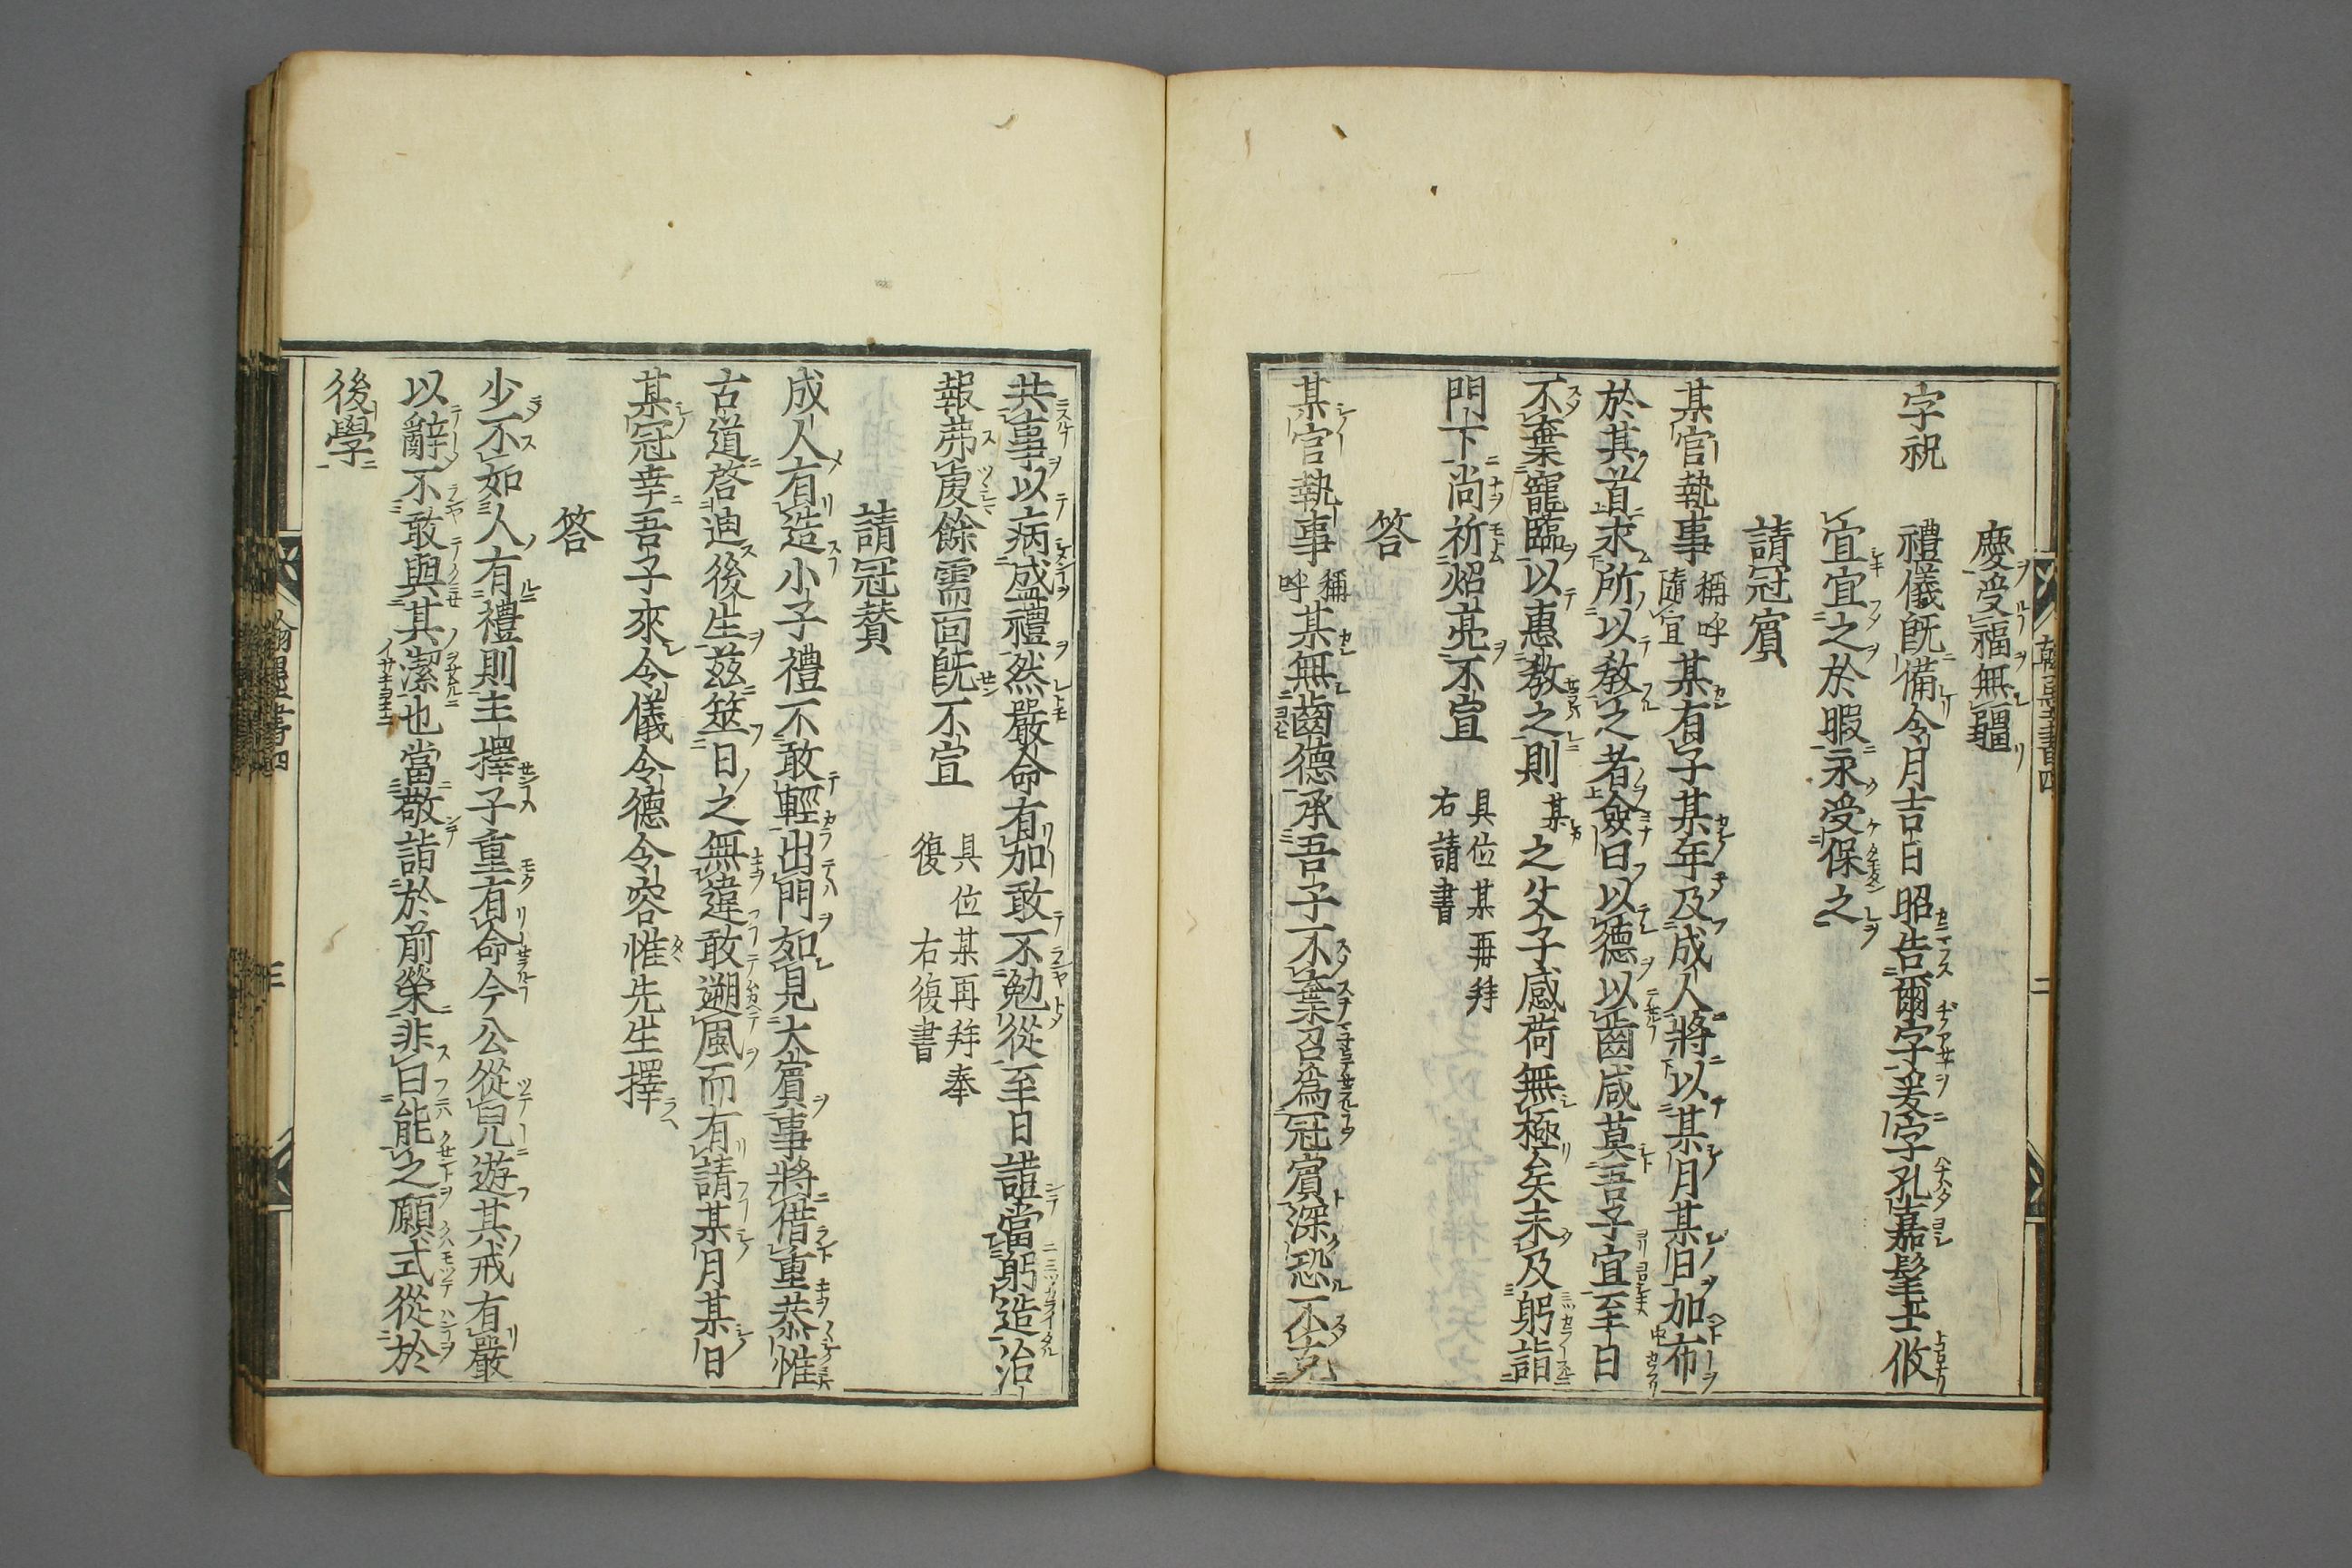 慶受福無疆
字祝　禮儀既備令月吉日昭告爾字爰字孔嘉髦士攸
宜宜之於暇永受保之
請冠賓
某官執事稱呼隨宜某有子某年及成人將以某月某日加布
於其首求所以敎之者僉曰以德以齒咸莫吾子宜至日
不棄寵臨以惠敎之則某之父子感荷無極矣未及躬詣
門下尚祈炤亮不宣　具位某再拜　右請書
答
某官執事稱呼某無齒德承吾子不棄召爲冠賓深恐不克
共事以病盛禮然嚴命有加敢不勉從至日謹當躬造治
報荐䖍餘需面既不宣　具位某再拜奉復　右復書
請冠賛
成人有造小子禮不敢輕出門如見大賓事將借重恭惟
古道啓迪後生兹筮日之無違敢遡風而有請某月某日
某冠幸吾子來令儀令德令容惟先生擇
答
少不如人有禮則主擇子重有命今公從兒遊其戒有嚴
以辭不敢與其潔也當敬詣於前榮非曰能之願式從於
後學
翰墨書四
三
二